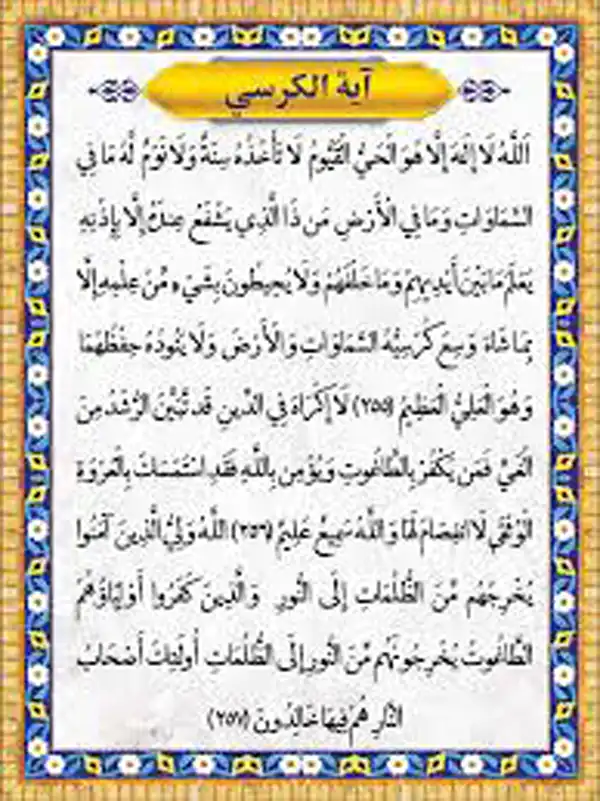 آية الكرسي
اَللَّهُ لَا إِلَهَ إِلَّا هُوَ الْحَيُّ الْقَيُّومُ لَا تَأْخُذُهُ سِنَةٌ وَلَا نَوْمٌ لَّهُ مَا فِي
السَّمَاوَاتِ وَمَا فِي الْأَرْضِ مَن ذَا الَّذِي يَشْفَعُ عِندَهُ إِلَّا بِإِذْنِهِ
يَعْلَمُ مَا بَيْنَ أَيْدِيهِمْ وَمَا خَلْفَهُمْ وَلَا يُحِيطُونَ بِشَيْءٍ مِّنْ عِلْمِهِ إِلَّا
بِمَا شَاءَ وَسِعَ كُرْسِيُّهُ السَّمَاوَاتِ وَالْأَرْضَ وَلَا يَئُودُهُ حِفْظُهُمَا
وَهُوَ الْعَلِيُّ الْعَظِيمُ (٢٥٥) لَا إِكْرَاهَ فِي الدِّينِ قَد تَّبَيَّنَ الرُّشْدُ مِنَ
الْغَيِّ فَمَن يَكْفُرْ بِالطَّاغُوتِ وَيُؤْمِن بِاللَّهِ فَقَدِ اسْتَمْسَكَ بِالْعُرْوَةِ
الْوُثْقَىٰ لَا انفِصَامَ لَهَا وَاللَّهُ سَمِيعٌ عَلِيمٌ (٢٥٦) اللَّهُ وَلِيُّ الَّذِينَ آمَنُوا
يُخْرِجُهُم مِّنَ الظُّلُمَاتِ إِلَى النُّورِ وَالَّذِينَ كَفَرُوا أَوْلِيَاؤُهُمُ
الطَّاغُوتُ يُخْرِجُونَهُم مِّنَ النُّورِ إِلَى الظُّلُمَاتِ أُولَئِكَ أَصْحَابُ
النَّارِ هُمْ فِيهَا خَالِدُونَ (٢٥٧)